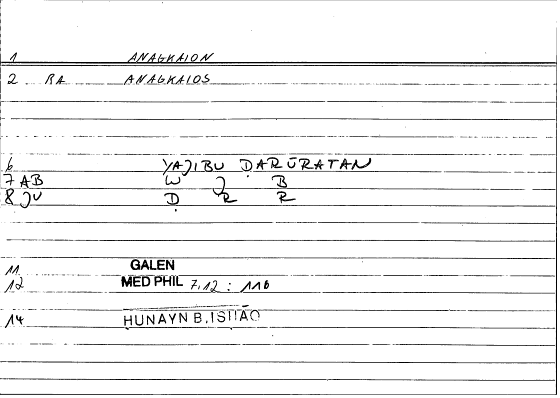 1 ANAGKAION
2 RA ANAGKAIOS
6 YAJIBU ḌARŪRATAN
7 AB W J B
8 JU Ḍ R R
11 GALEN
12 MED PHIL 7.12 : 11B
14 HUNAYN B. ISḤĀQ